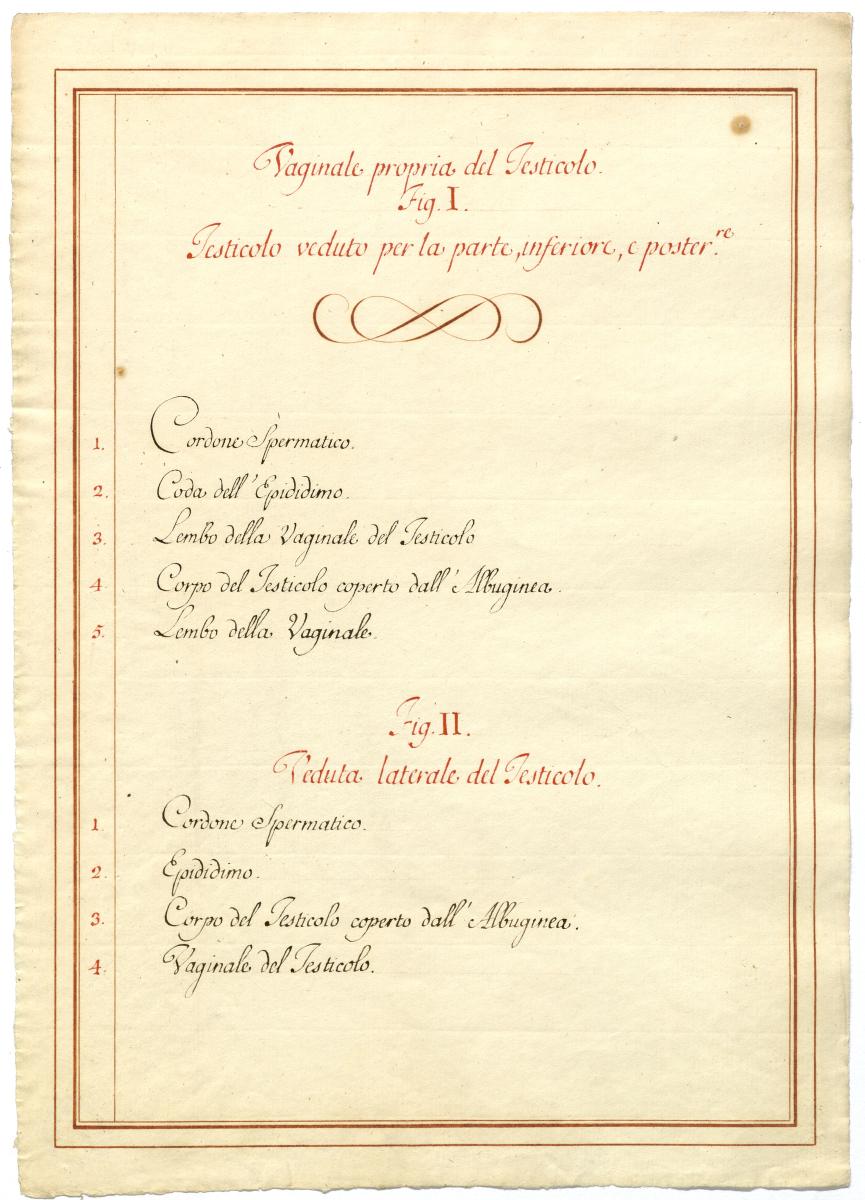 Vaginale propria del Testicolo.
Fig. I.
Testicolo veduto per la parte, inferiore, e poster.re
1. Cordone Spermatico.
2. Coda dell'Epididimo.
3. Lembo della Vaginale del Testicolo
4. Corpo del Testicolo coperto dall'Albuginea.
5. Lembo della Vaginale.
Fig. II.
Veduta laterale del Testicolo.
1. Cordone Spermatico.
2. Epididimo.
3. Corpo del Testicolo coperto dall'Albuginea.
4. Vaginale del Testicolo.